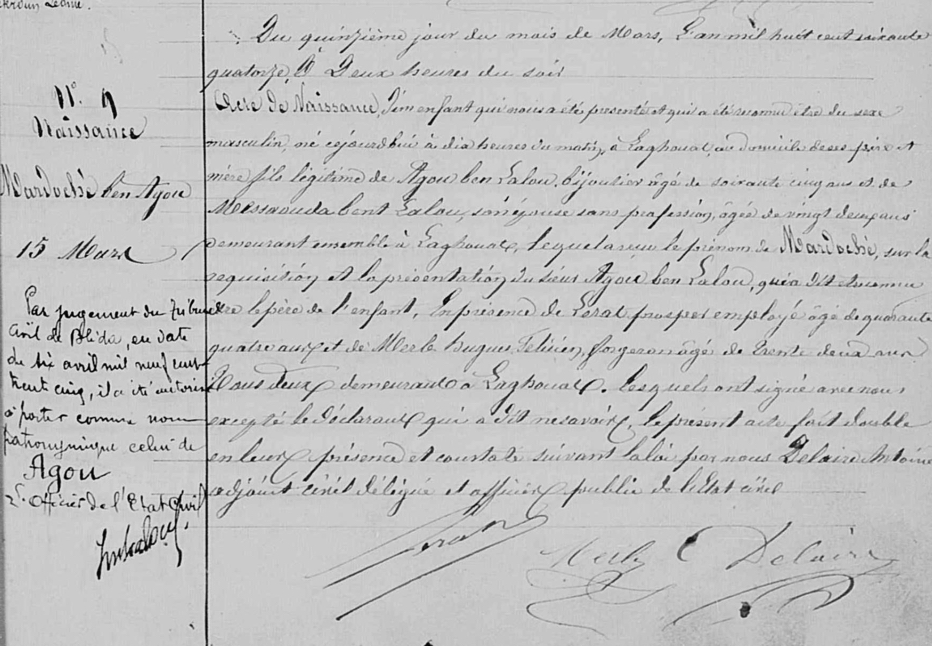 N° 9
Naissance
Mardoché ben Agou
15 Mars
Par jugement du tribunal
civil de Blida, en date
du six avril mil neuf cent
trente cinq, il a été autorisé
à porter comme nom
patronymique celui de
Agou
L'officier de l'Etat Civil
Du quinzième jour du mois de Mars, l'an mil huit cent soixante
quatorze, à Deux heures du soir
Acte de Naissance, d'un enfant qui nous a été présenté et qui a été reconnu être du sexe
masculin, né cejourd'hui à dix heures du matin, à Laghouat, au domicile de ses père et
mère fils légitime de Agou ben Lalou, bijoutier âgé de soixante cinq ans et de
Messaouda bent Lalou, son épouse sans profession, âgée de vingt deux ans
demeurant ensemble à Laghouat, lequel a reçu le prénom de Mardoché, sur la
requisition et la présentation du sieur Agou ben Lalou, qui a dit et reconnu
être le père de l'enfant, En présence de Lorat prosper employé âgé de quarante
quatre ans et de Merle hugues, felicien, forgeron âgé de trente deux ans
Tous deux demeurant à Laghouat. Lesquels ont signé avec nous
excepté le déclarant qui a dit ne savoir, le présent acte fait double
en leur présence et constaté suivant la loi par nous Delaire Antoine
adjoint civil délégué et officier public de l'état civil
Lorat
Merle
Delaire